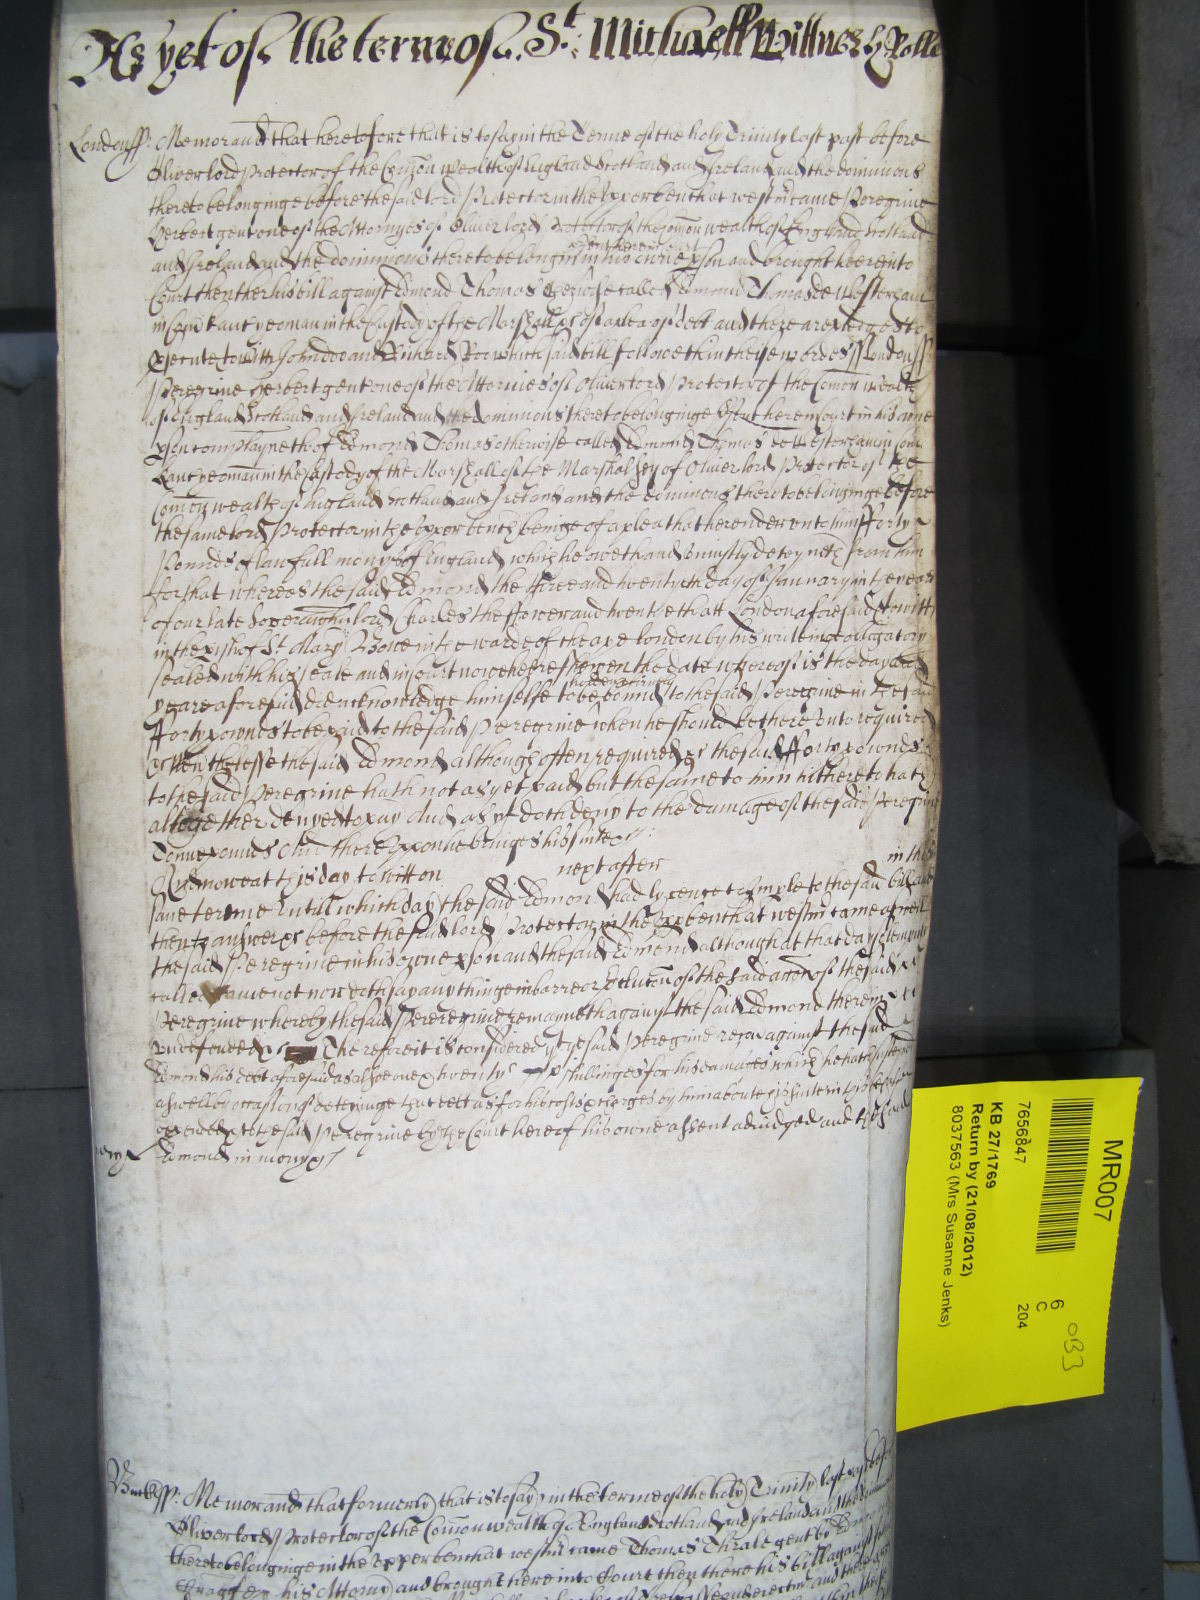 As yet of the terme of St Michaell Wittnes H Rolle
London ss Memorand that heretofore that is to say in the Terme of the holy Trinity last past before
Oliver lord Protector of the Comon wealth of England Scotland and Ireland and the dominions
thereto belonginge before the said lord Protector in the Upper bench at westmr came Peregrine
Herbert gent one of the Attornyes of Oliver lord Protector of the comon wealth of England Scotland
and Ireland and the dominions thereto belonging in his owne pson and brought heere into
Court then ther his bill against Edmond Thomas otherwise called Edmond Thomas de Westerham
in Com Kanc yeoman in the Custody of the Marshall &c of a plea of debt and there are pledges to
psecute to witt John doo and Richard Roo which said bill followeth in theise wordes ss London ss
Peregrine Herbert gent one of the Attornies of Oliver lord Protector of the Comon wealth
of England Scotland and Ireland and the dominions thereto belonginge psent here in Court in his owne
pson complayneth of Edmond Thomas otherwise called Edmond Thomas de Westerham in Com
Kanc yeoman in the Custody of the Marshall of the Marshalsey of Oliver lord Protector of the
Comon wealth of England Scotland and Ireland and the dominions thereto belonginge before
the same lord Protector in the Upper bench beinge of a plea that he render unto him fforty
Pounds of lawfull monys of England which he oweth and uniustly detayneth from him
for that whereas the said Edmond the three and twentyth day of January in the yeare
of our late Soveraigne lord Charles the ffower and twentieth att London aforesaid to witt
in the pish of St Mary Bowe in the warde of Cheape london by his writinge obligatory
sealed with his seale and in Court nowe here shewen the date whereof is the day and
yeare aforesaid did acknowledge himselfe to be bound to the said Peregrine in the said
fforty pownds to be paid to the said Peregrine when he should be there unto required
Neverthelesse the said Edmond although often required &c the said fforty pownds
to the said Peregrine hath not as yet paid but the same to him hitherto hath
altogether denyed to pay And as yet doth deny to the damage of the said Peregrine
Tenne pounds And there uppon he brings his suite &c
And now at this day to witt on next after in this
same terme Untill which day the said Edmond had lycence to imple to the said bill and
then to answer &c before the said lord Protector in the Upper bench at westmr came as well
the said Peregrine in his owne pson and the said Edmond although at that day solemnly
called came not nor doth say any thinge in barre or of the said accon of the said
Peregrine whereby the said Peregrine remayneth against the said Edmond therein
undefended &c Therefore it is considered yt the said Peregrine recov against the said
Edmond his debt aforesaid as alsoe twenty shillinges for his damages which he hath susteyned
aswell by occasion of deteyninge that debt as for his costs & charges by him aboute his suite in this behalfe
to the said Peregrine by the Court here of his owne assent adiudged and the said
Edmond in mercy &c
mcy
Buck ss Memorand that formerly that is to say in the terme of the holy Trinity last past before
Oliver lord Protector of the Comon wealth of England Scotland and Ireland and the dominions
thereto belonginge in the Upper bench at westmr came Thomas Thrale gent by Edmond
his Attorny and brought here into Court then there his bill against
MR007
7656847
6
C
204
KB 27/1769
Return by (21/08/2012)
8037563 (Mrs Susanne Jenks)